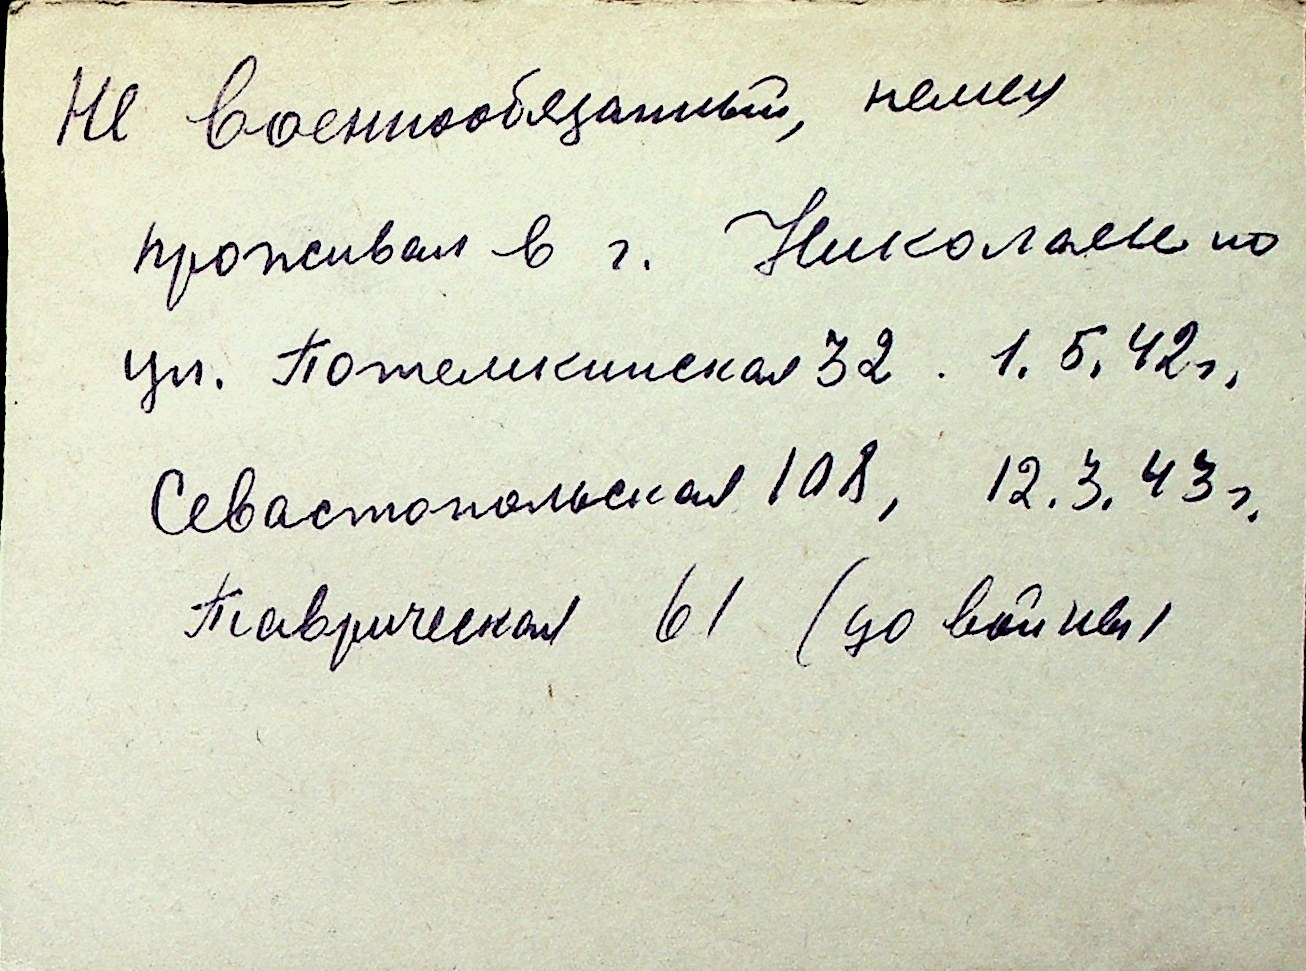 Не военнообязанный, немец
проживал в г. Николаеве по
ул. Потемкинская 32. 1.5.42г.
Севастопольская 108, 12.3.43г.
Таврическая 61 (до войны